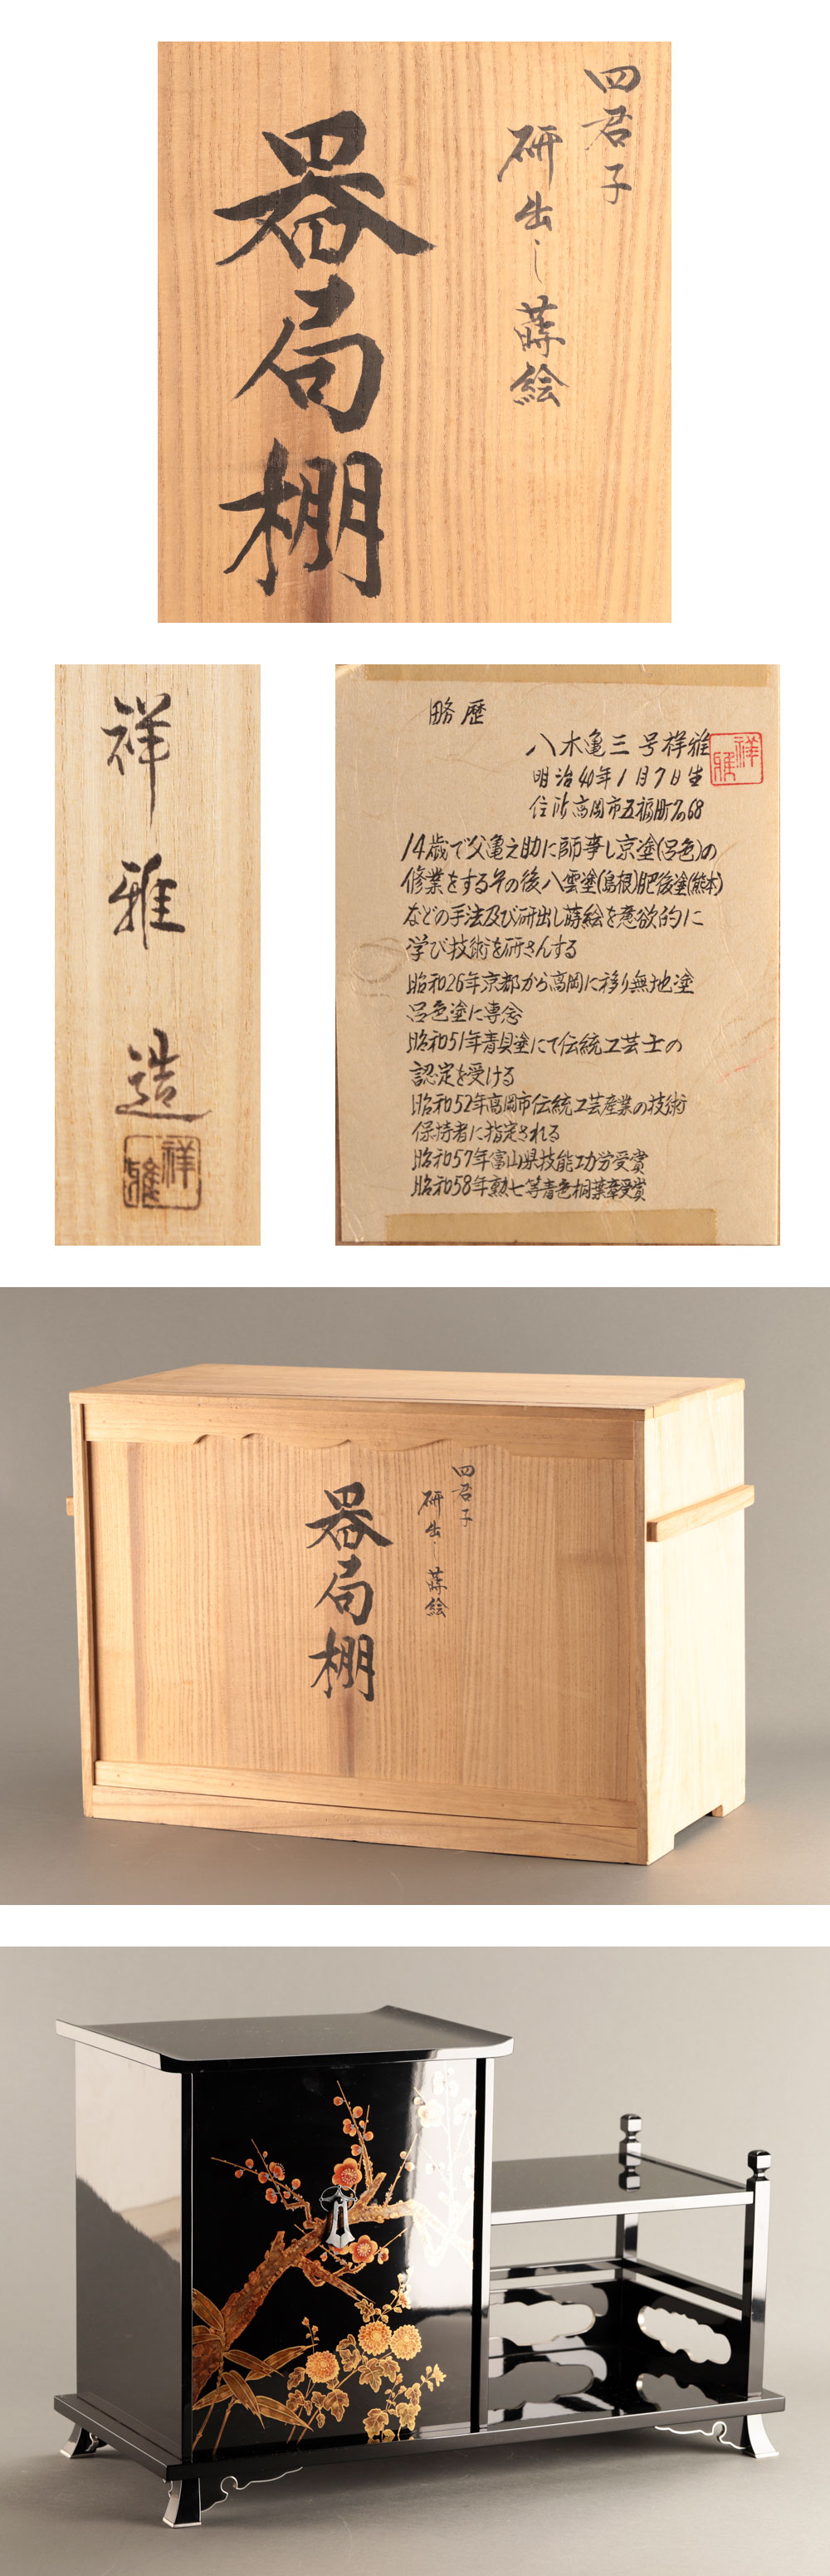 四君子
研出し蒔絵
器局棚
祥雅造
祥雅
略歴
八木亀三 号祥雅
祥雅
明治40年1月7日生
住所高岡市五福町7の68
14歳で父亀之助に師事し京塗(呂色)の
修業をするその後八雲塗(島根)肥後塗(熊本)
などの手法及び研出し蒔絵を意欲的に
学び技術を研さんする
昭和26年京都から高岡に移り無地塗
呂色塗に専念
昭和51年青貝塗にて伝統工芸士の
認定を受ける
昭和52年高岡市伝統工芸産業の技術
保持者に指定される
昭和57年富山県技能功労受賞
昭和58年勲七等青色桐葉章受賞
四君子
研出し蒔絵
器局棚